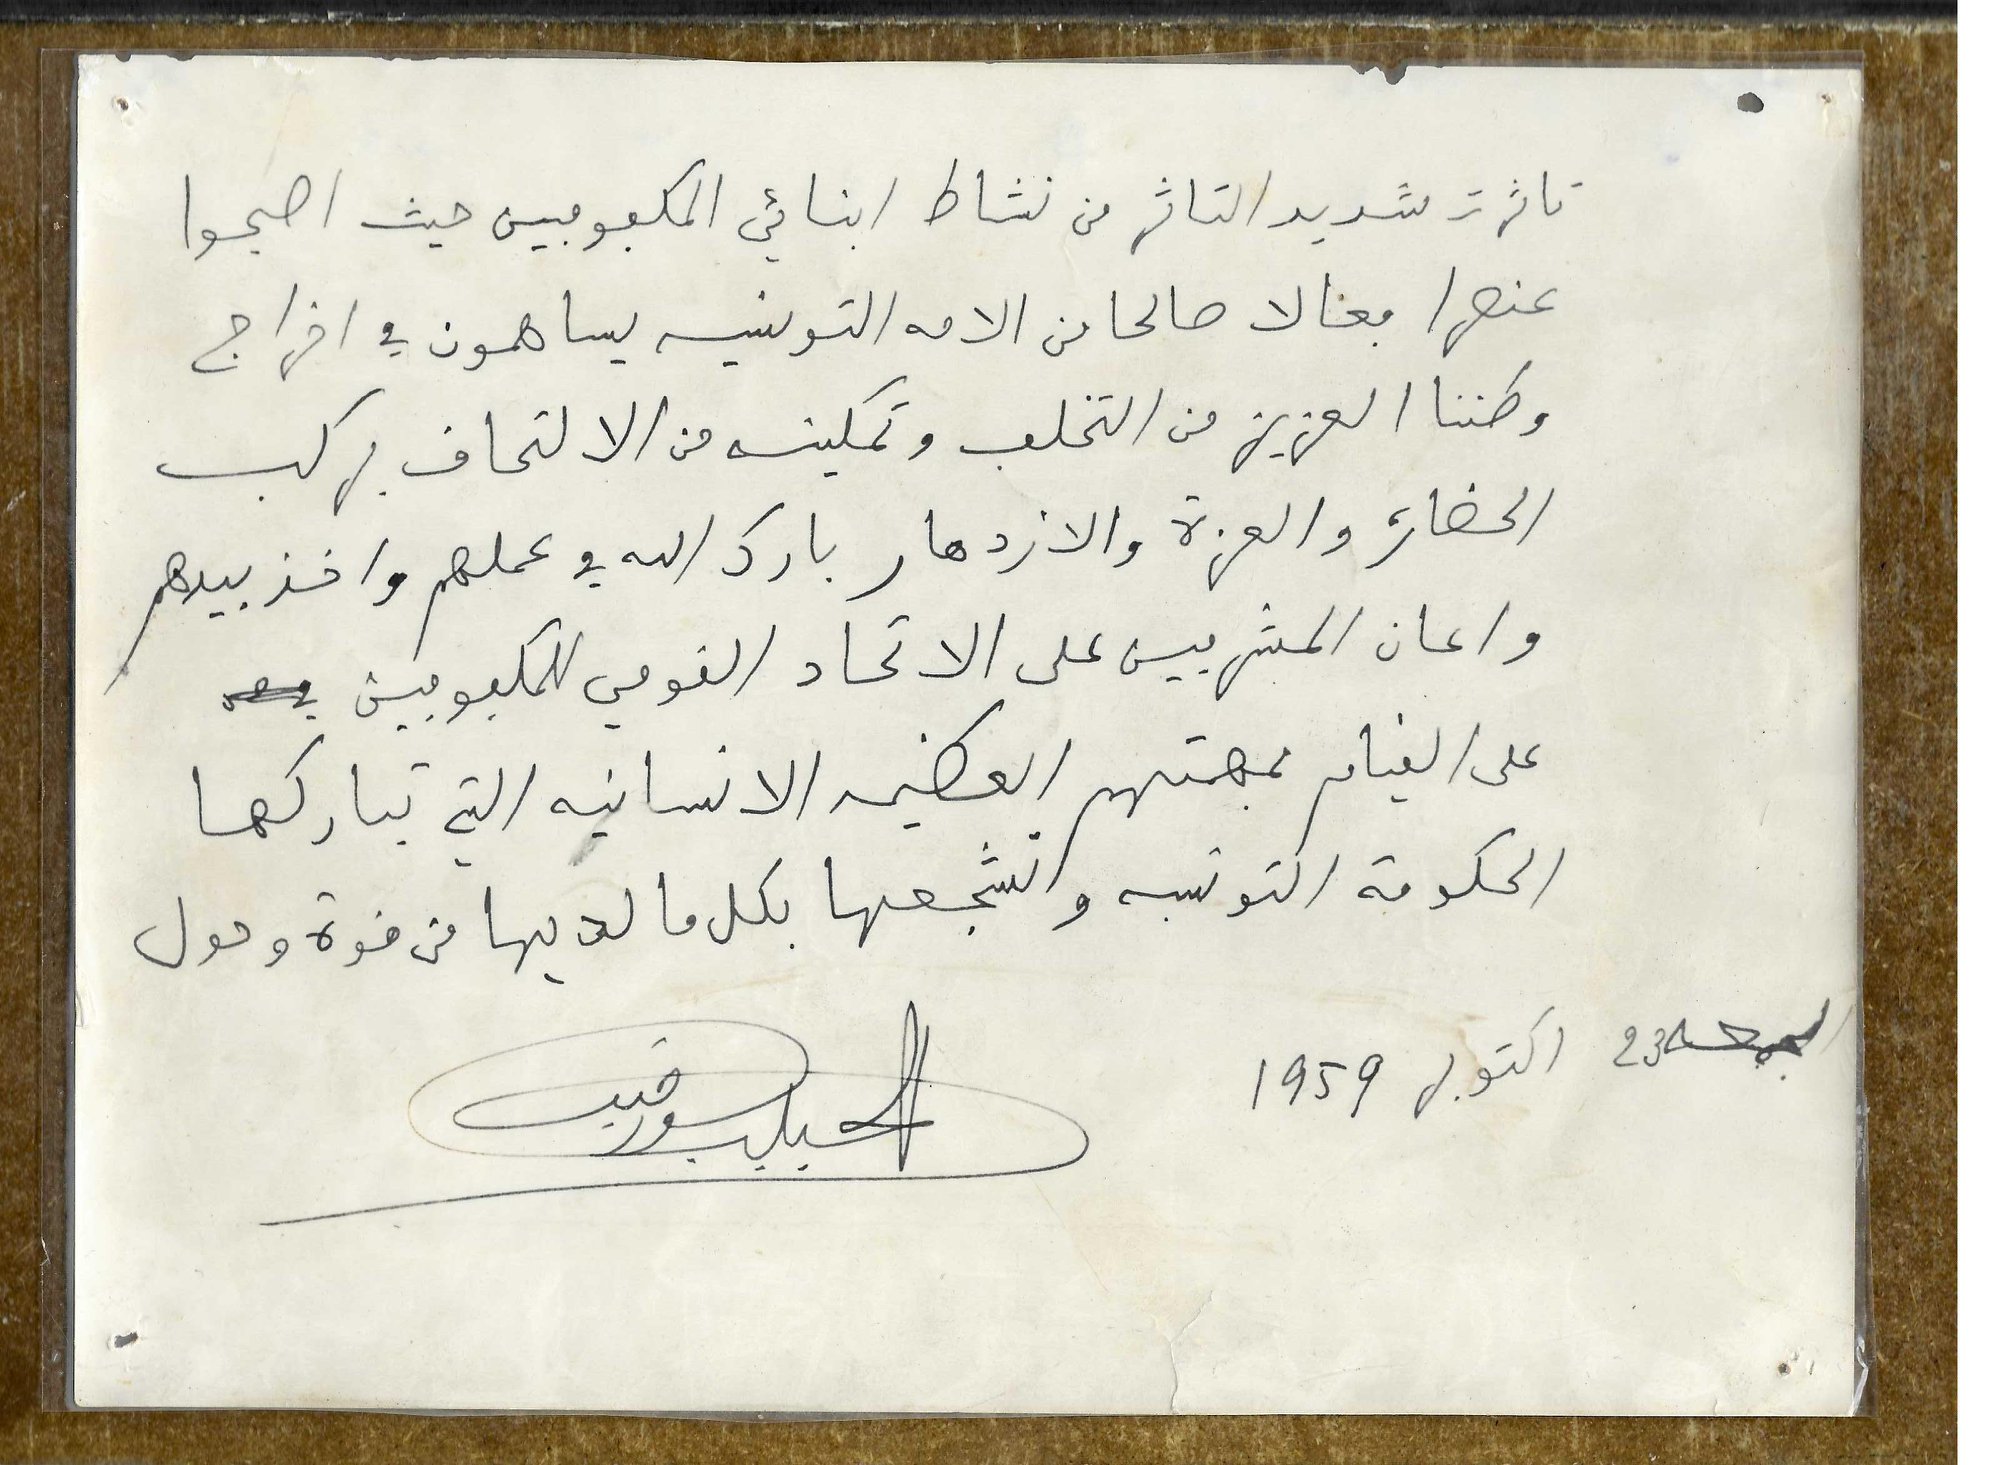 تاثرت شديد التاثر من نشاط ابنائي المكفوفين حيث اصبحوا
عنصرا فعالا صالحا من الامه التونسيه يساهمون في اخراج
وطننا العزيز من التخلف وتمكينه من الالتحاق بركب
الحضارة والعزة والازدهار بارك الله في عملهم واخذ بيدهم
واعان المشرفين على الاتحاد القومي للمكفوفين
على القيام بمهمتهم العظيمه الانسانيه التي تباركها
الحكومة التونسيه وتشجعها بكل ما لديها من قوة وحول
الجمعه 23 اكتوبر 1959
الحبيب بورقيبه